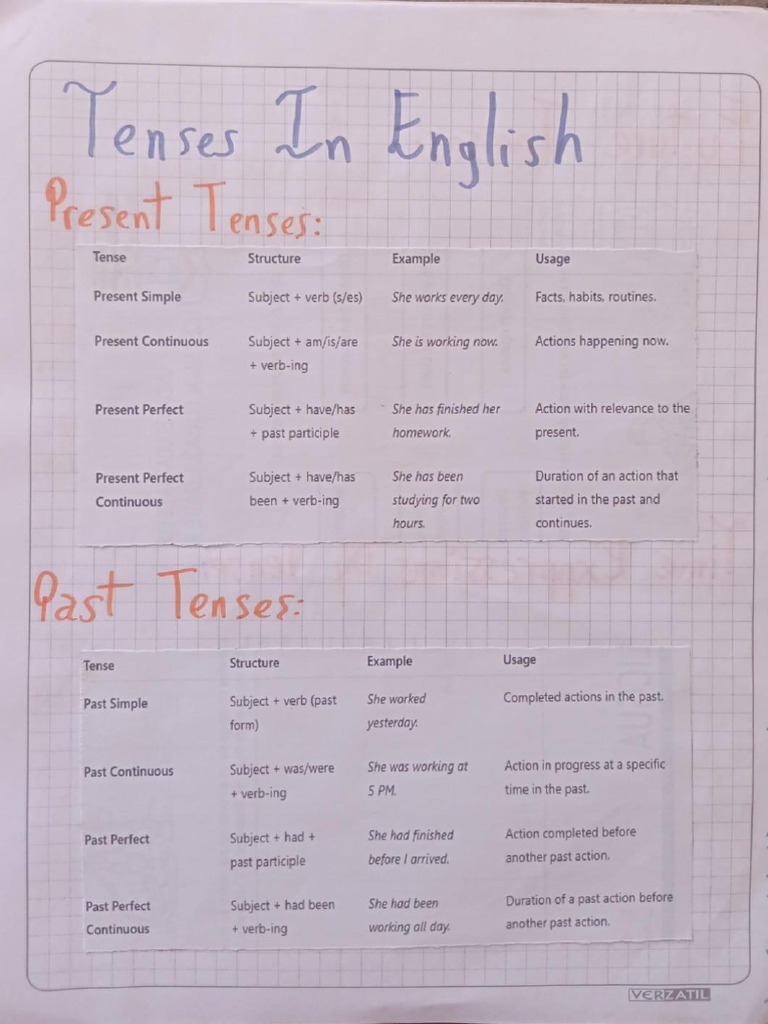 Tenses In English
Present Tenses:
Tense Structure Example Usage
Present Simple Subject + verb (s/es) She works every day. Facts, habits, routines.
Present Continuous Subject + am/is/are She is working now. Actions happening now.
+ verb-ing
Present Perfect Subject + have/has She has finished her Action with relevance to the
+ past participle homework. present.
Present Perfect Subject + have/has She has been Duration of an action that
Continuous been + verb-ing studying for two started in the past and
hours. continues.
Past Tenses:
Tense Structure Example Usage
Past Simple Subject + verb (past She worked Completed actions in the past.
form) yesterday.
Past Continuous Subject + was/were She was working at Action in progress at a specific
+ verb-ing 5 PM. time in the past.
Past Perfect Subject + had + She had finished Action completed before
past participle before I arrived. another past action.
Past Perfect Subject + had been She had been Duration of a past action before
Continuous + verb-ing working all day. another past action.
VERZATIL